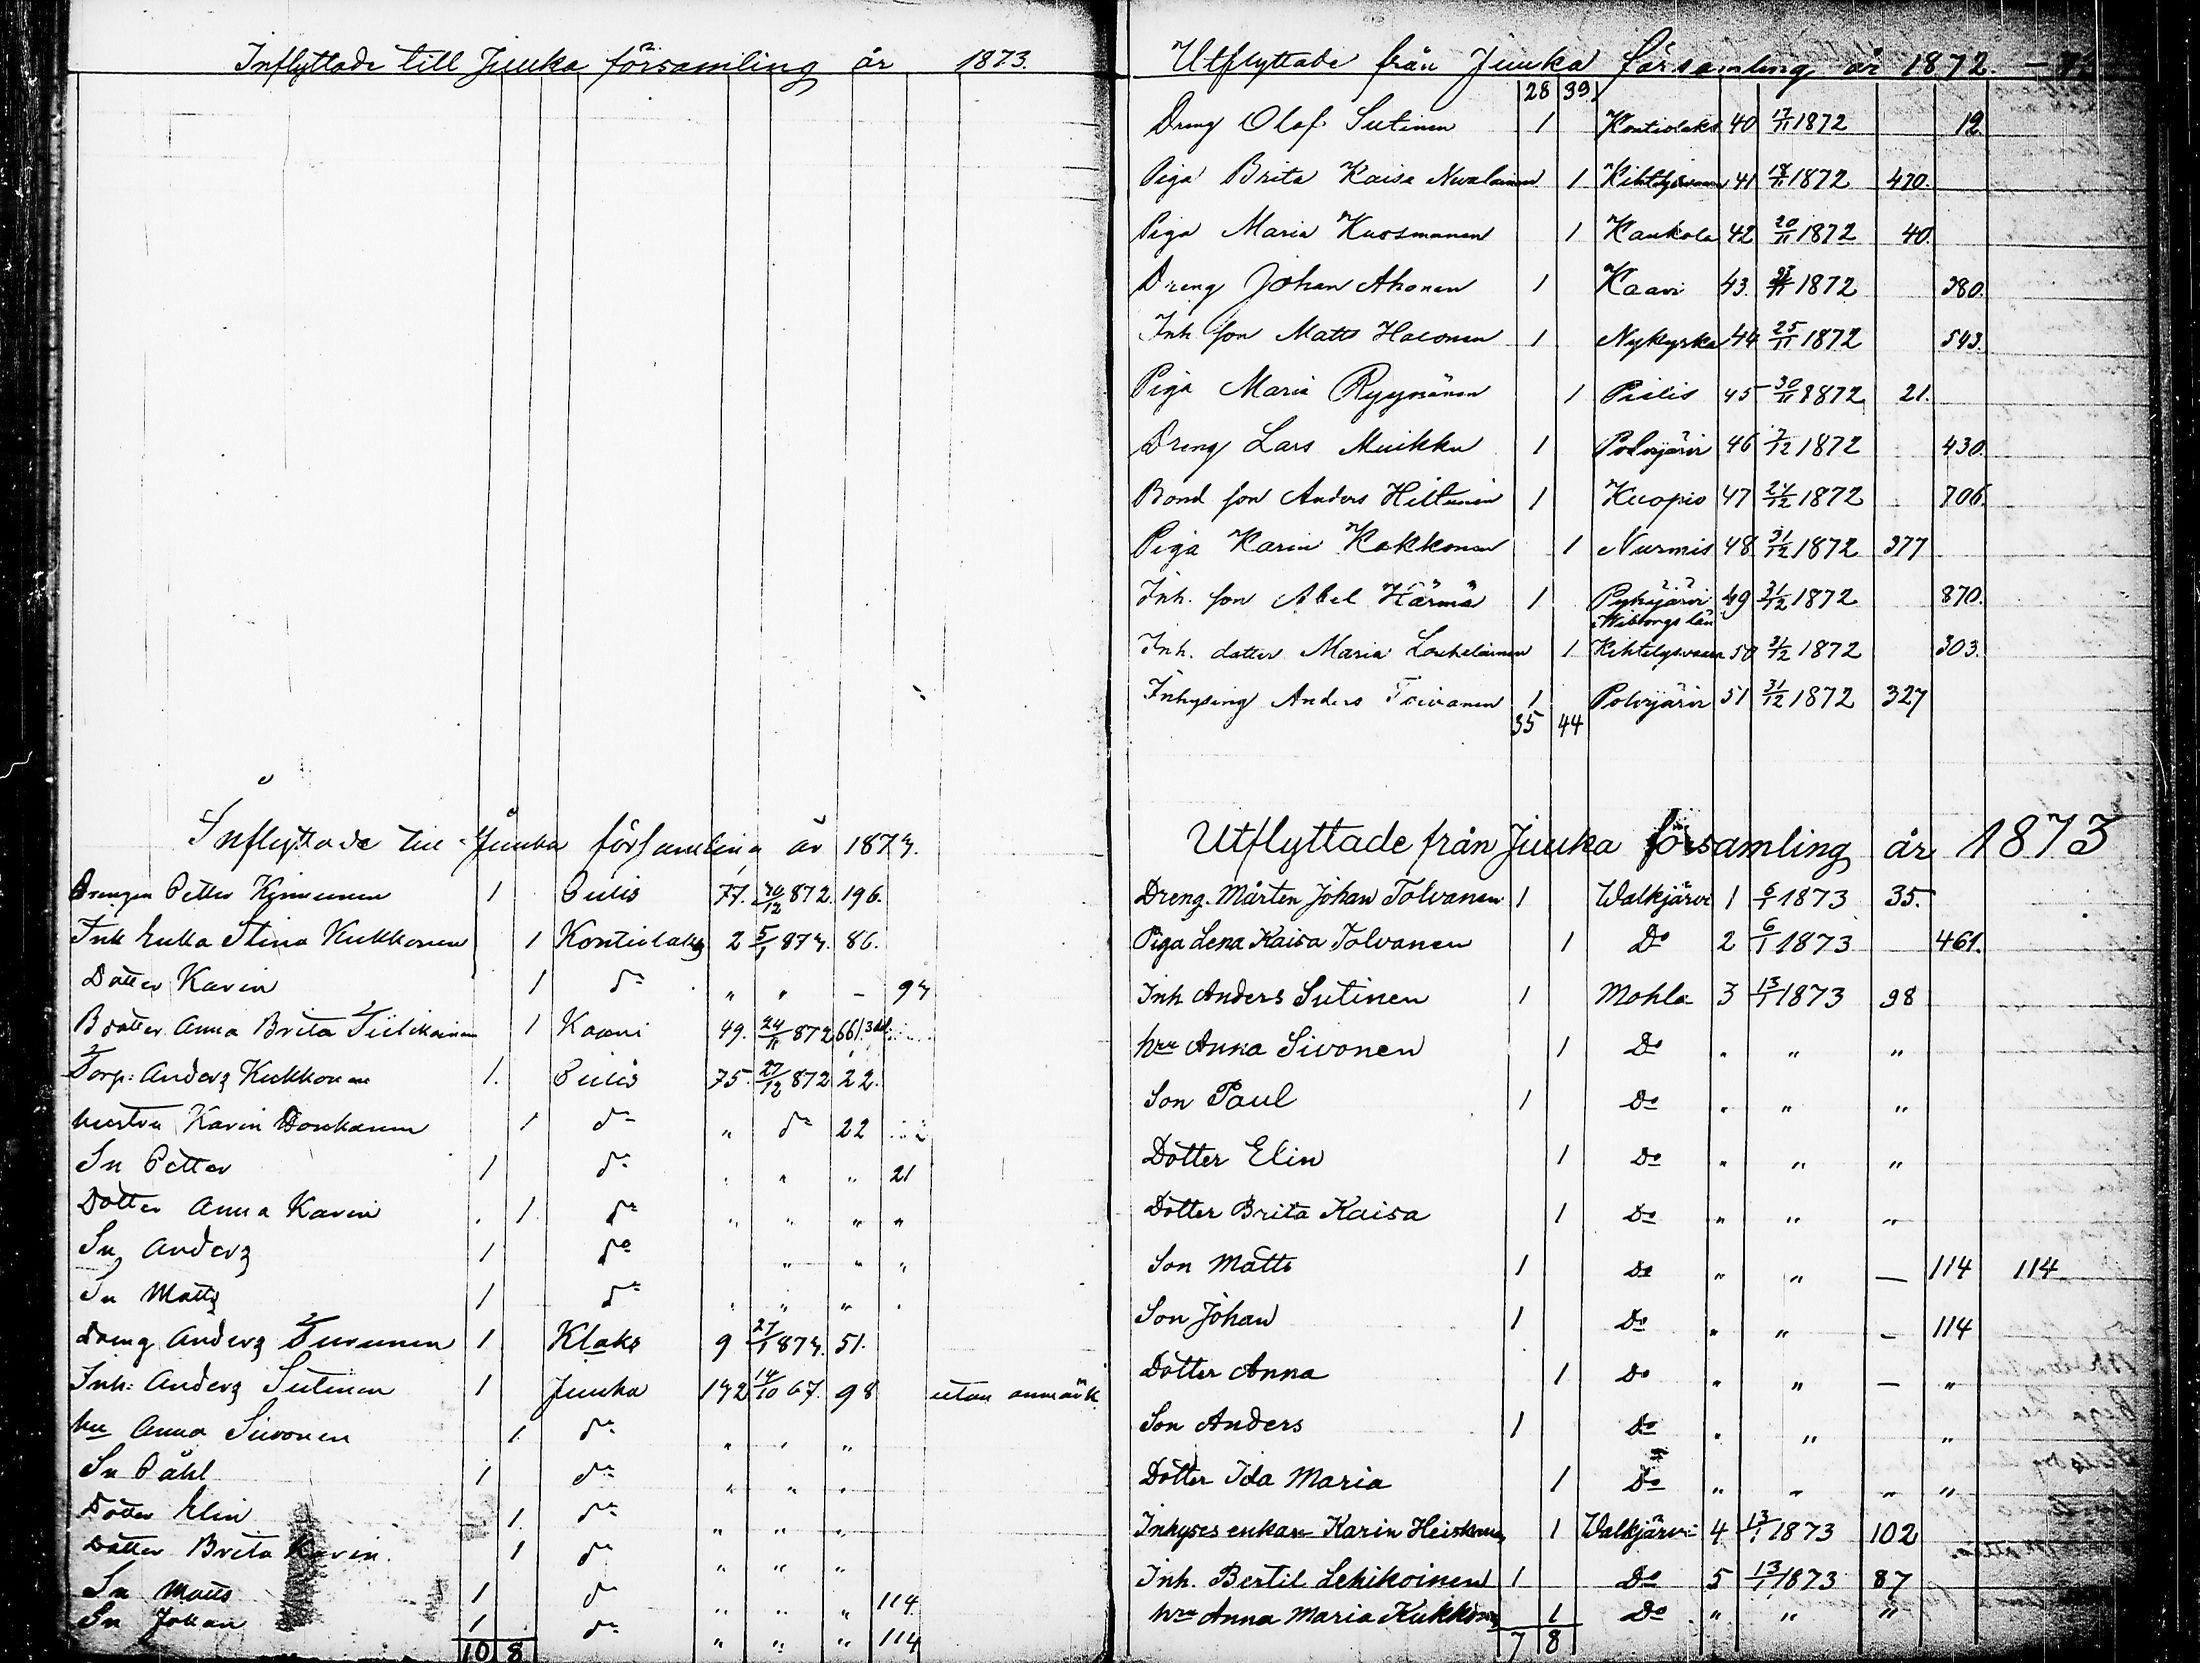 Inflyttade till Juuka församling år 1873.
Inflyttade till Juuka församling år 1873.
Drengen Petter Kinnunen 1 Pielis 77. 30/12 872. 196.
Inh Enka Stina Kukkonen 1 Kontiolaks 2 5/1 873. 86.
Dotter Karin 1 do " " - 93
B dotter Anna Brita Tiilikainen 1 Kaavi 49. 24/11 872 661.
Torp: Anders Kukkonen 1. Pielis 75. 27/12 872 22.
hustru Karin 1 do " do 22
Sn Petter 1 do " " " 21
Dotter Anna Karin 1 do " " " "
Sn Anders 1 do " " "
Sn Matts 1 do " " "
Dreng Anders Turunen 1 Klaks 9 27/1 873. 51.
Inh: Anders Sutinen 1 Juuka 142 14/10 67. 98 utan anmärk
hu Anna Sivonen 1 do " " "
Sn Påhl 1 do " " "
Dotter Elin 1. do " " "
Dotter Brita Karin 1 do " " "
Sn Matts 1 do " " " 114
Sn Johan 1 do " " " 114
10 8
Utflyttade från Juuka församling år 1872.
28 39
Dreng Olof Sutinen 1 Kontiolaks 40 17/11 1872 12
Piga Brita Kaisa Nevalainen 1 Kihtelysvaara 41 18/11 1872 470.
Piga Maria Kuosmanen 1 Kaukola 42 20/11 1872 40.
Dreng Johan Ahonen 1 Kaavi 43. 23/11 1872 380.
Inh son Matts Halonen 1 Nykyrka 44 25/11 1872 543.
Piga Maria Ryynänen 1 Pielis 45 30/11 1872 21.
Dreng Lars Muikku 1 Polvijärvi 46 7/12 1872 430.
Bond son Anders Hiltunen 1 Kuopio 47 24/12 1872 706.
Piga Karin Kakkonen 1 Nurmis 48 31/12 1872 377
Inh. son Abel Härmä 1 Pyhäjärvi 49 31/12 1872 870.
Wiborgs län
Inh. dotter Maria Laukelainen 1 Kihtelysvaara 50 31/12 1872 303.
Inhysing Anders Toivanen 1 Polvijärvi 51 31/12 1872 327
35 44
Utflyttade från Juuka församling år 1873
Dreng. Mårten Johan Tolvanen 1 Walkjärvi 1 6/1 1873 35.
Piga Lena Kaisa Tolvanen 1 Do 2 6/1 1873 461.
Inh Anders Sutinen 1 Mohla 3 13/1 1873 98
hru Anna Sivonen 1 Do " " "
Son Paul 1 Do " " "
Dotter Elin 1 Do " " "
Dotter Brita Kaisa 1 Do " " "
Son Matts 1 Do " " — 114 114
Son Johan 1 Do " " - 114
Dotter Anna 1 Do " " — "
Son Anders 1 Do " " "
Dotter Ida Maria 1 Do " " " "
Inhyses enkan Karin Heiskanen 1 Walkjärvi 4 13/1 1873 102
Inh. Bertil Lehikoinen 1 Do 5 13/1 1873 87
hru Anna Maria Kukkonen 1 Do " " "
7 8